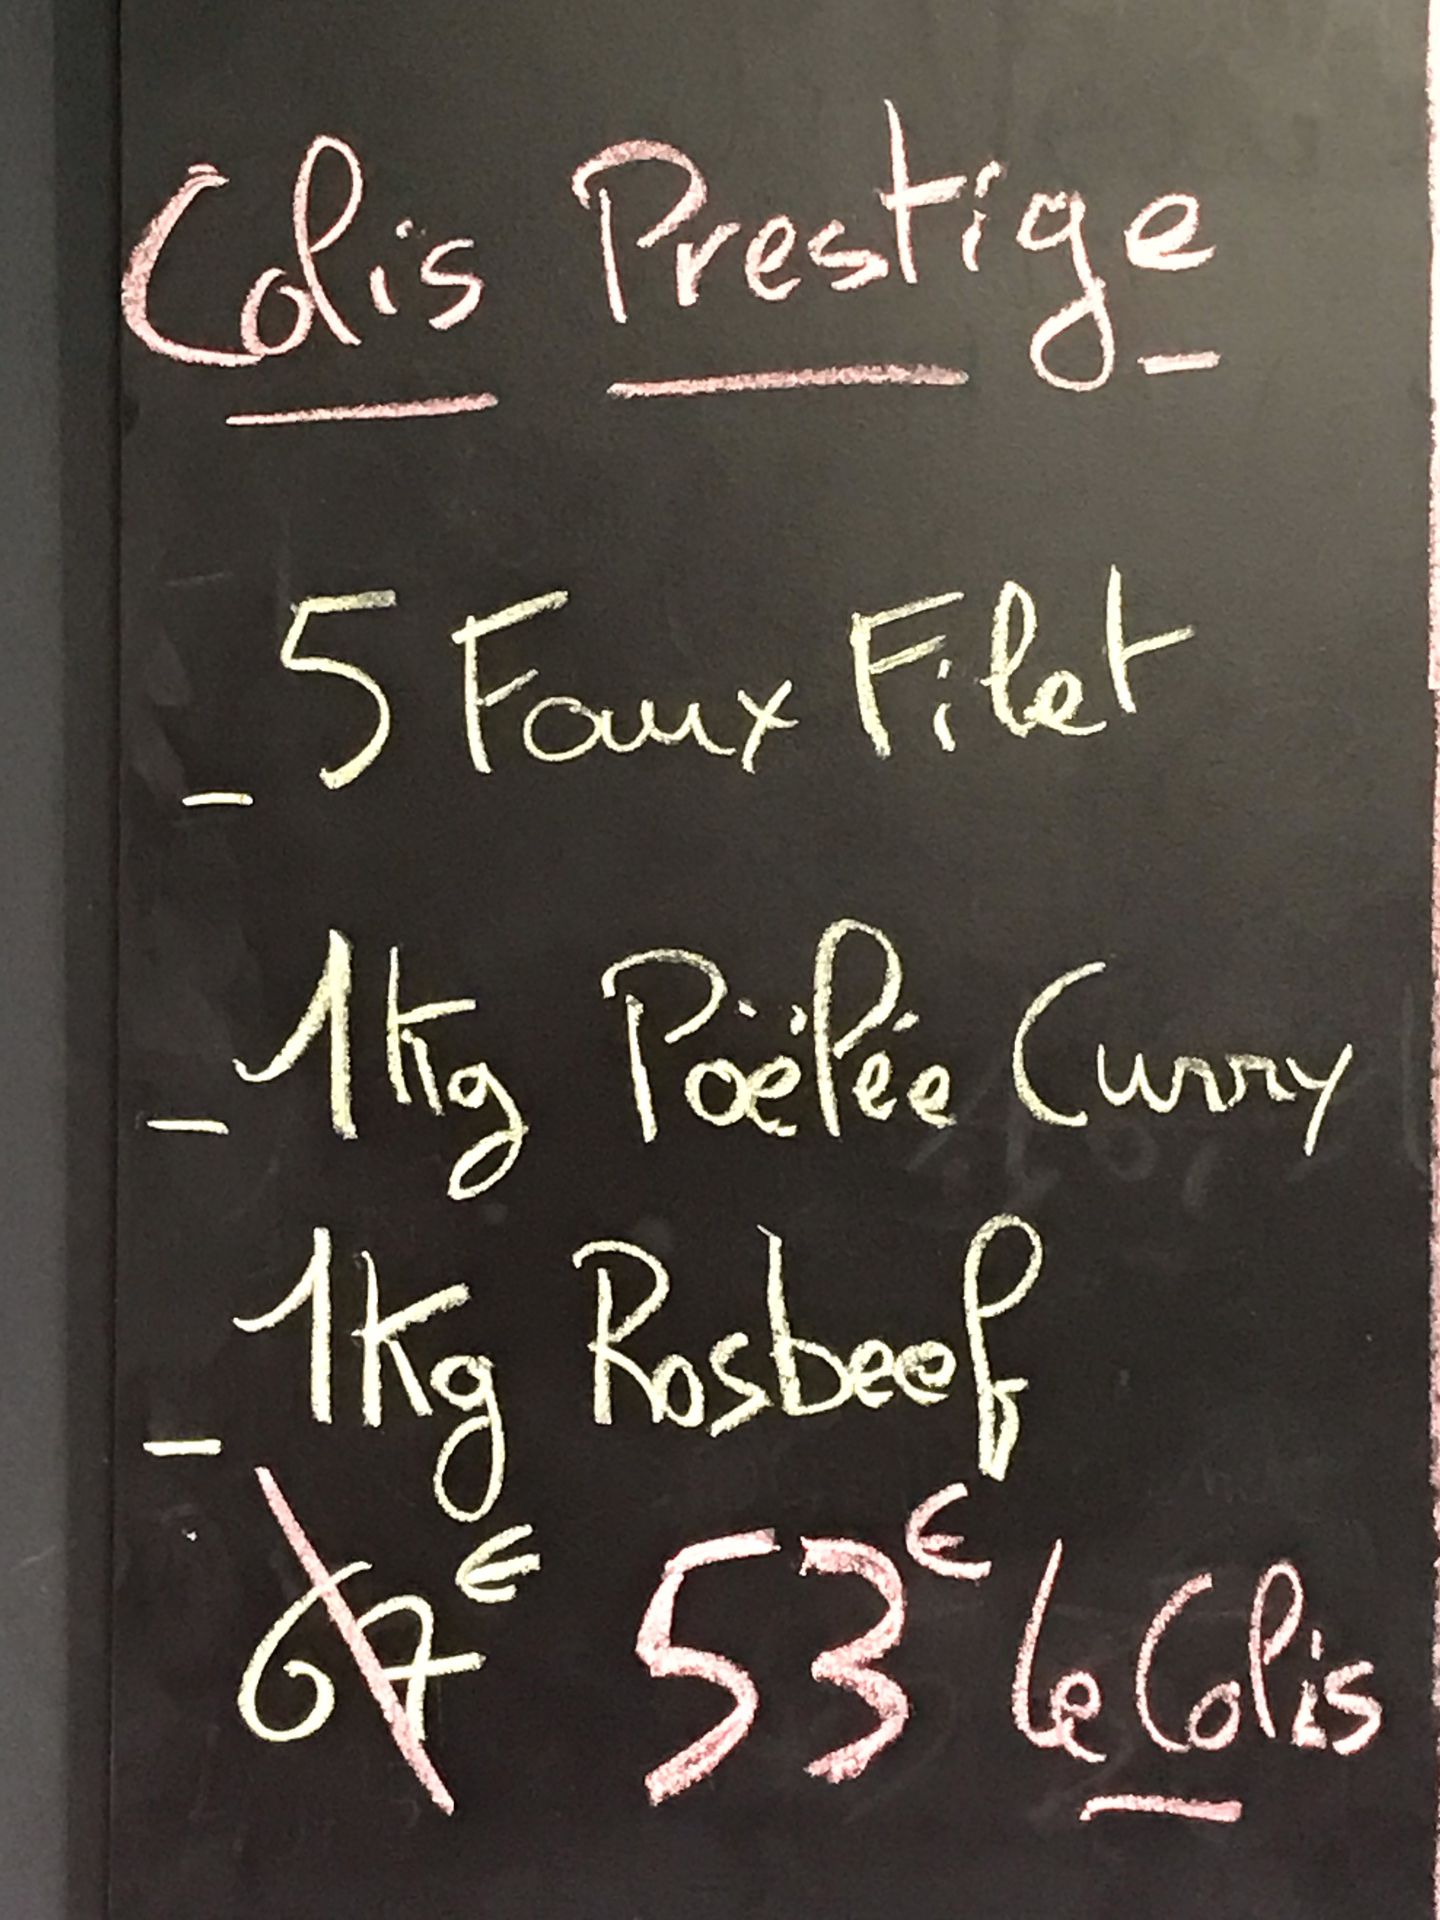 Colis Prestige
- 5 Faux Filet
- 1Kg Poëlée Curry
- 1Kg Rosbeef
67€ 53€ le Colis